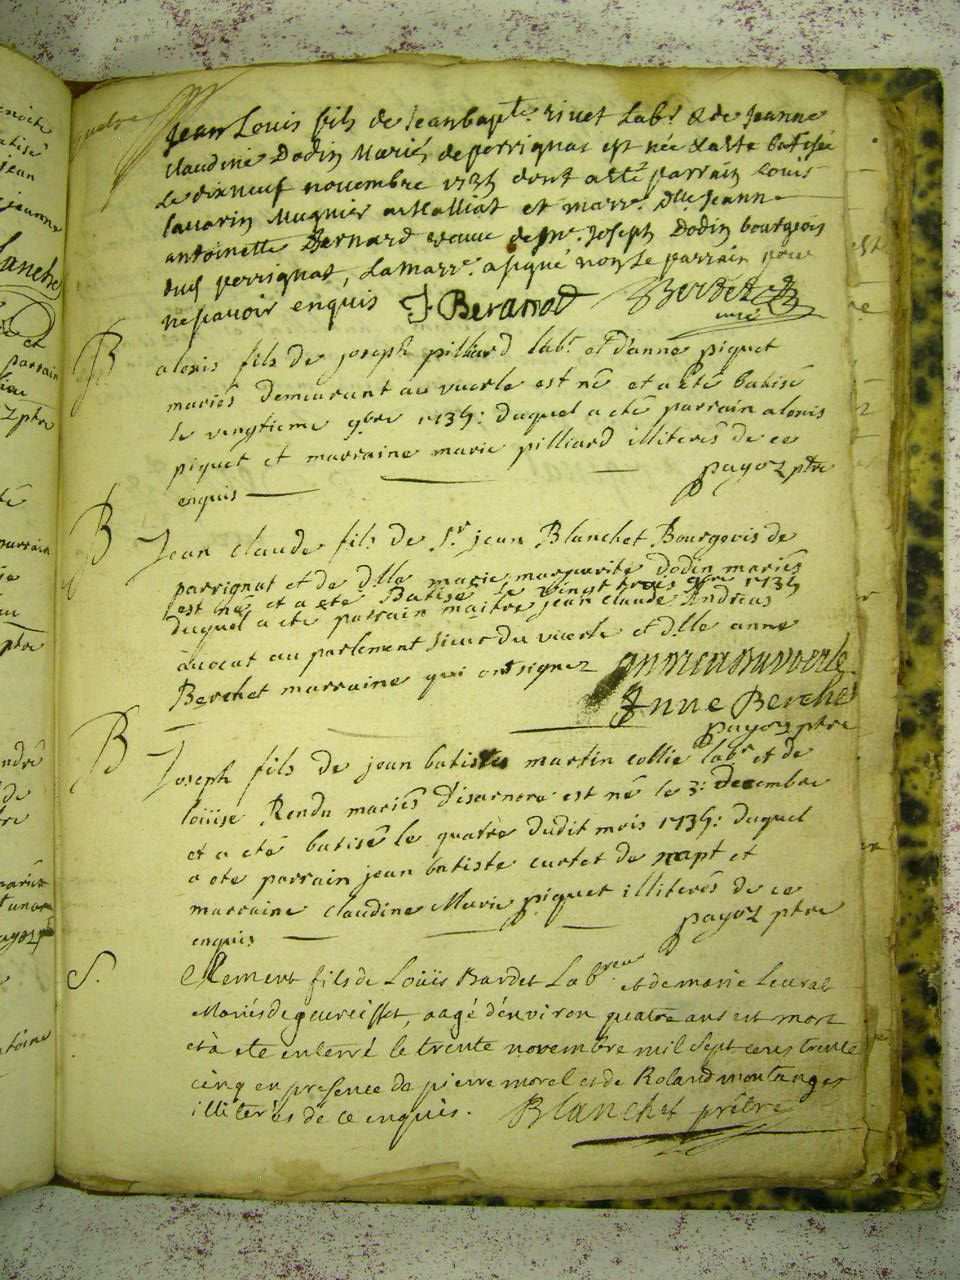 Jean Louis fils de Jeanbapte rivet Labr & de Jeanne
claudine Dodin Mariés de perrignat est née & a été batisée
Le dixneuf novembre 1735 dont a été parrain Louis
Mugnier et marre. Dlle Jeann
antoinette Bernard veuve de Mr. Joseph Dodin bourgeois
dud perrignat, La marre. a signé non Le parrain pour
ne savoir enquis
curé
B
alexis fils de joseph pilliard labr et d'anne piquet
mariés demeurant au vuerle est né et a été batisé
le vingtieme 9bre 1735: duquel a été parrain alexis
piquet et marraine marie pilliard illiterés de ce
enquis
payoz ptre
B
Jean claude fils de Sr jean Blanchet Bourgeois de
parrignat et de dlle marie marguerite Dodin mariés
est né et a été Batisé le vingt trois 9bre 1735
duquel a été parrain maitre jean claude Andreas
avocat au parlement sieur du vuerle et dlle anne
Berchet marraine qui ont signez
Anne Berchet
payoz ptre
B
Joseph fils de jean batiste martin collie labr et de
loüise Rendu mariés d'isarnore est né le 3: decembre
et a été batisé le quatre dudit mois 1735: duquel
a été parrain jean batiste curtet de napt et
marraine claudine Marie piquet illiterés de ce
enquis
payoz ptre
S.
Clement fils de Loüis Bardet Labreur et de marie
Mariés de geureisset, aagé d'environ quatre ans est mort
et à été enterré le trente novembre mil sept cens trente
cinq en presence de pierre morel et de Roland montanges
illiterés de ce enquis.
Blanchet prêtre